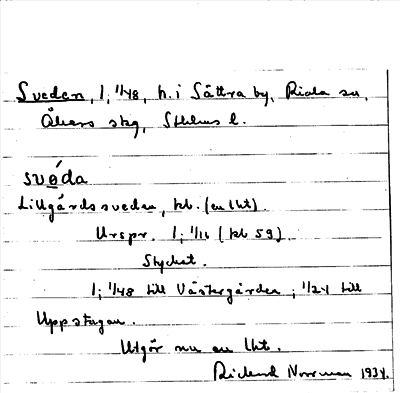 Sveden, 1, 1/48, h. i Sättra by, Riala sn,
Åkers skg, Sthlms l.
svéda
Lillgårdssveden, kb. (en lht).
Urspr. 1; 1/16 (kb 59).
Stycket.
1; 1/48 till Västergården; 1/24 till
Uppstugan.
Utgör nu en lht.
Rickard Norrman 1934.